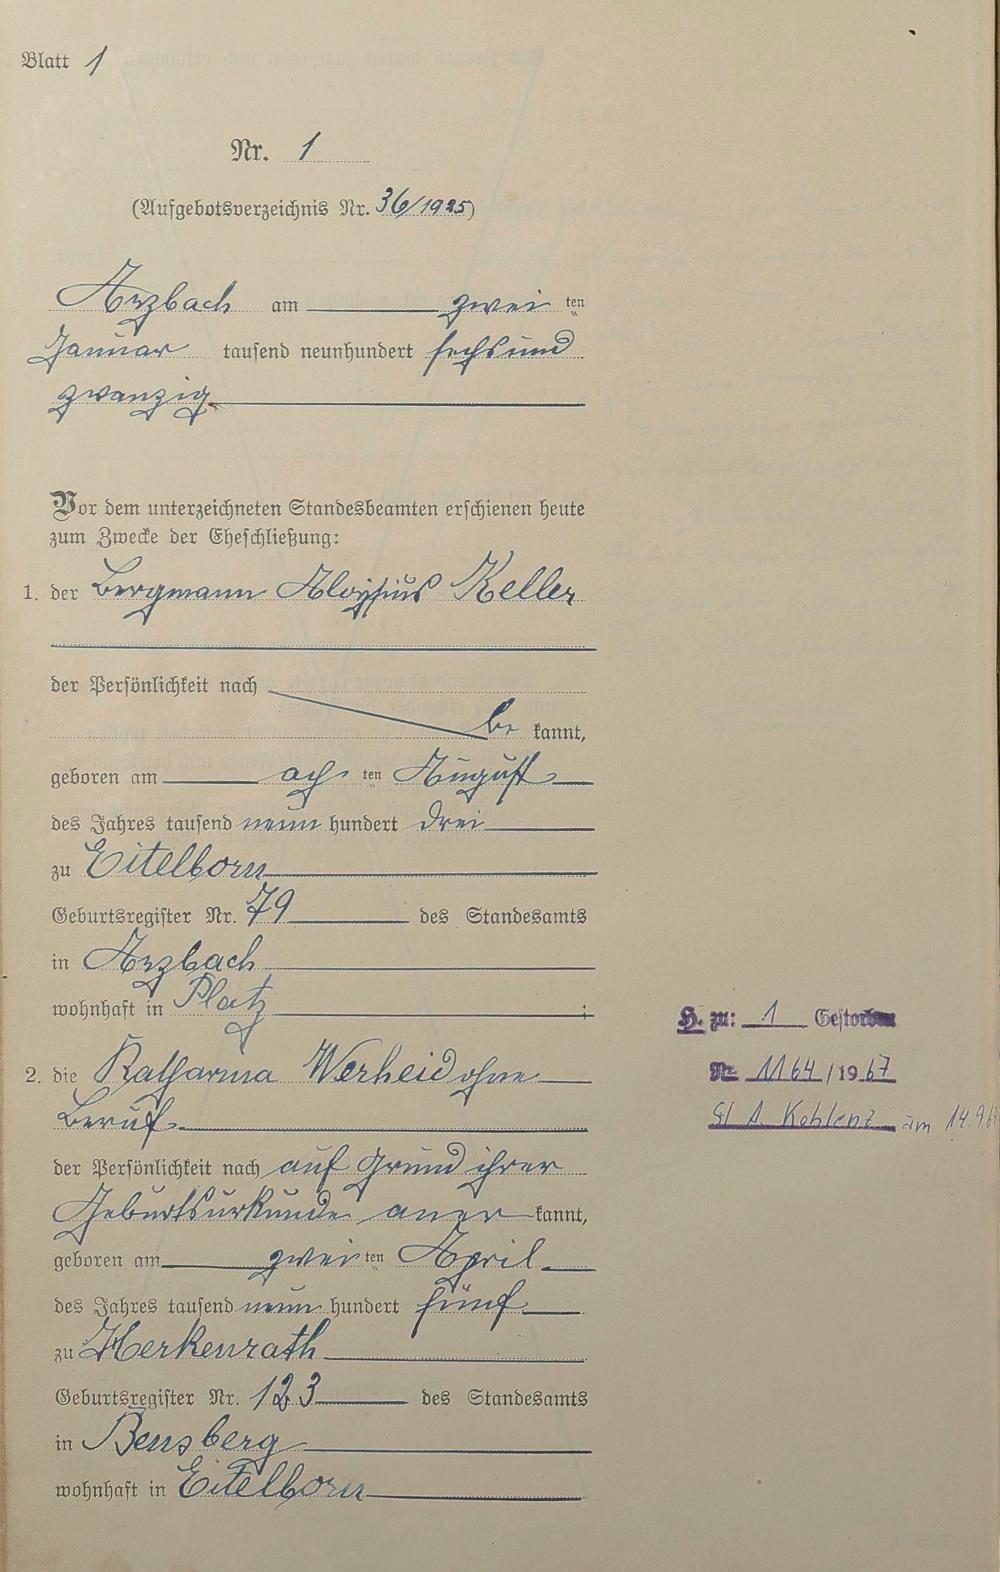 Blatt 1
Nr. 1
(Aufgebotsverzeichnis Nr. 36/1925)
Arzbach am zwei ten
Januar tausend neunhundert sechsund
zwanzig
Vor dem unterzeichneten Standesbeamten erschienen heute
zum Zwecke der Eheschließung:
1. der Bergmann Aloysius Keller
der Persönlichkeit nach
be kannt,
geboren am ach ten August
des Jahres tausend neun hundert drei
zu Eitelborn
Geburtsregister Nr. 79 des Standesamts
in Arzbach
wohnhaft in Platz ;
2. die Katharina Werheid ohne
Beruf
der Persönlichkeit nach auf Grund ihrer
Geburtsurkunde aner kannt,
geboren am zwei ten April
des Jahres tausend neun hundert fünf
zu Herkenrath
Geburtsregister Nr. 123 des Standesamts
in Bensberg
wohnhaft in Eitelborn
H. zu: 1 Gestorben
Nr. 1164/1967
St A. Koblenz am 14.9.6